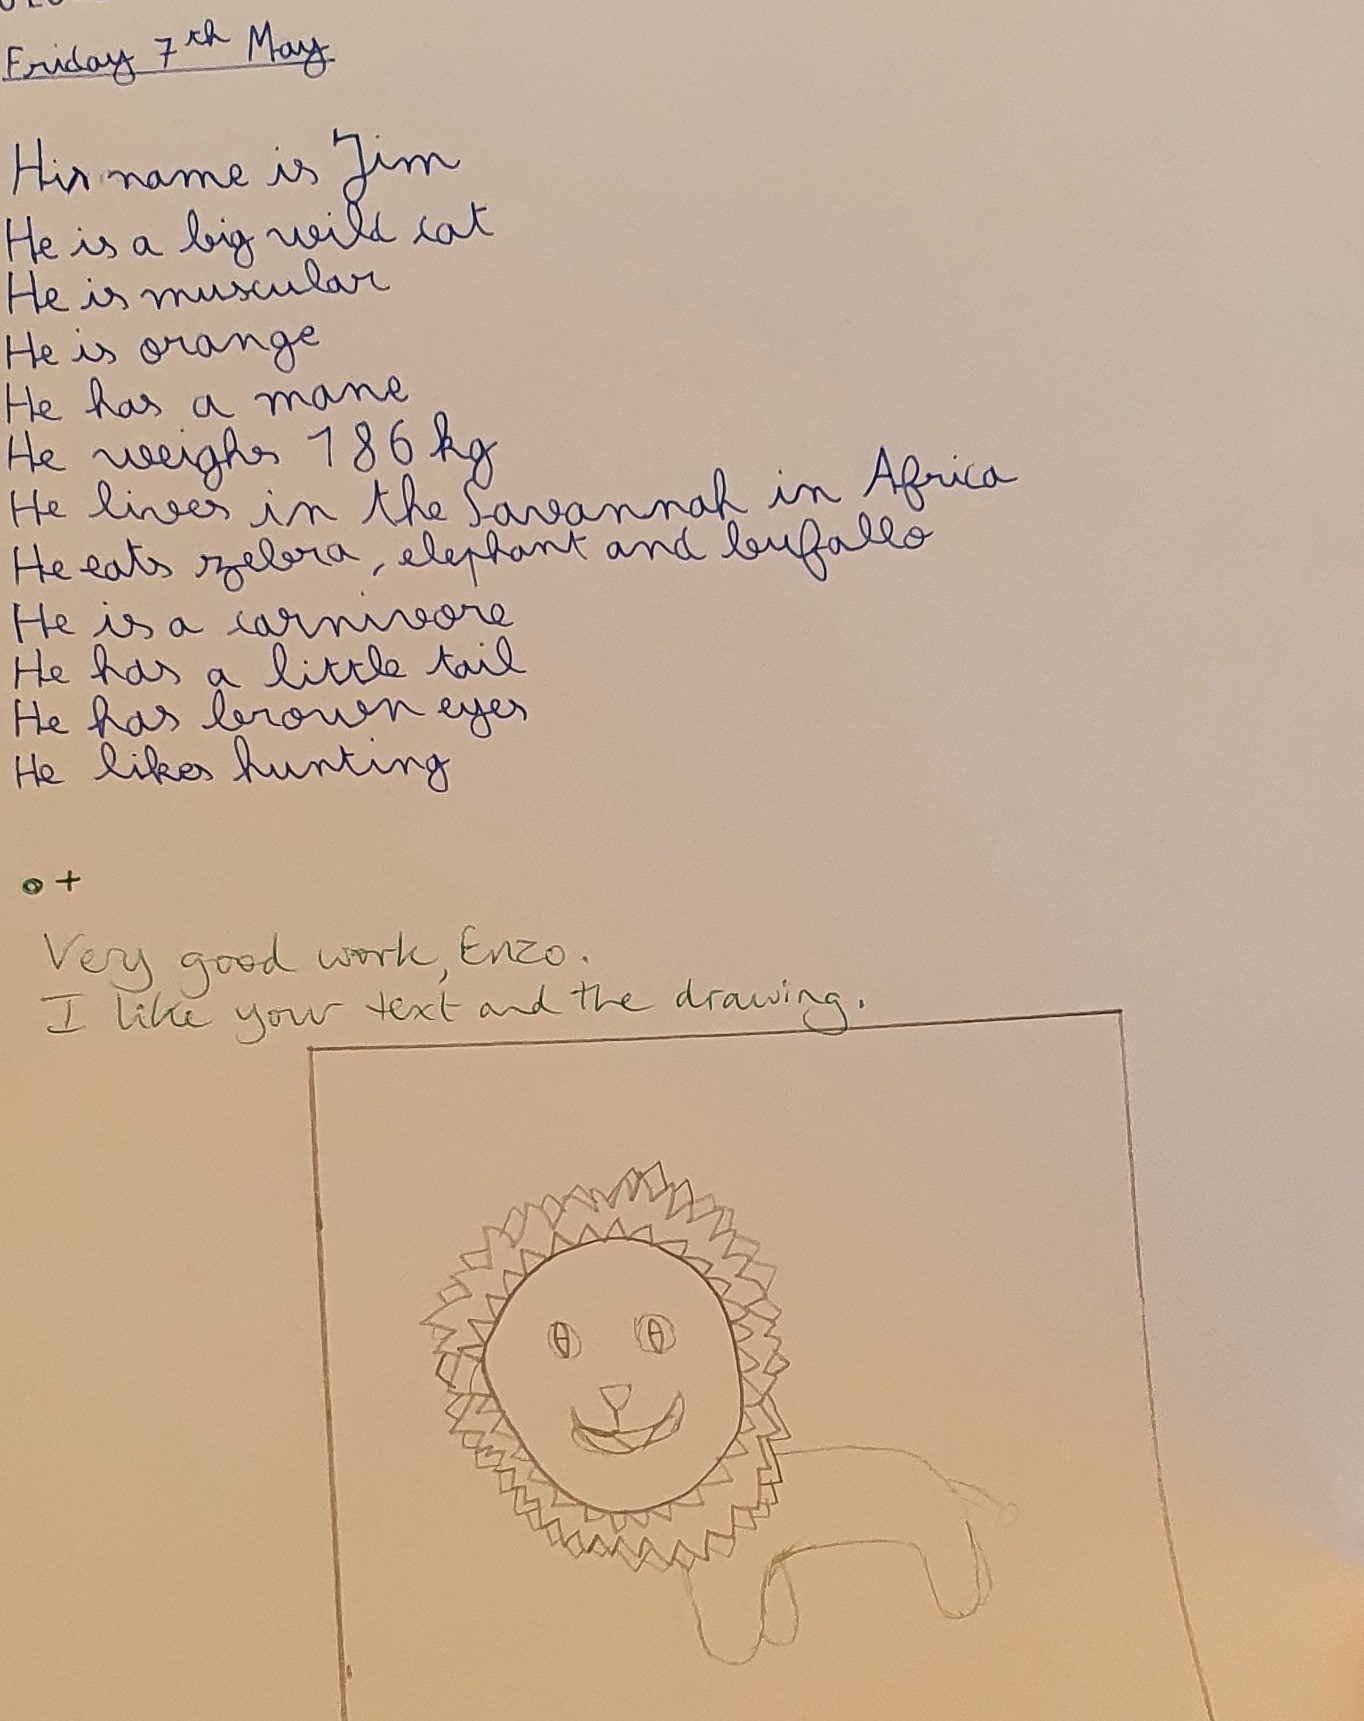 Friday 7th May
His name is Jim
He is a big wild cat
He is muscular
He is orange
He has a mane
He weighs 186 kg
He lives in the Savannah in Africa
He eats zebra, elephant and bufallo
He is a carnivore
He has a little tail
He has brown eyes
He likes hunting
o +
Very good work, Enzo.
I like your text and the drawing.